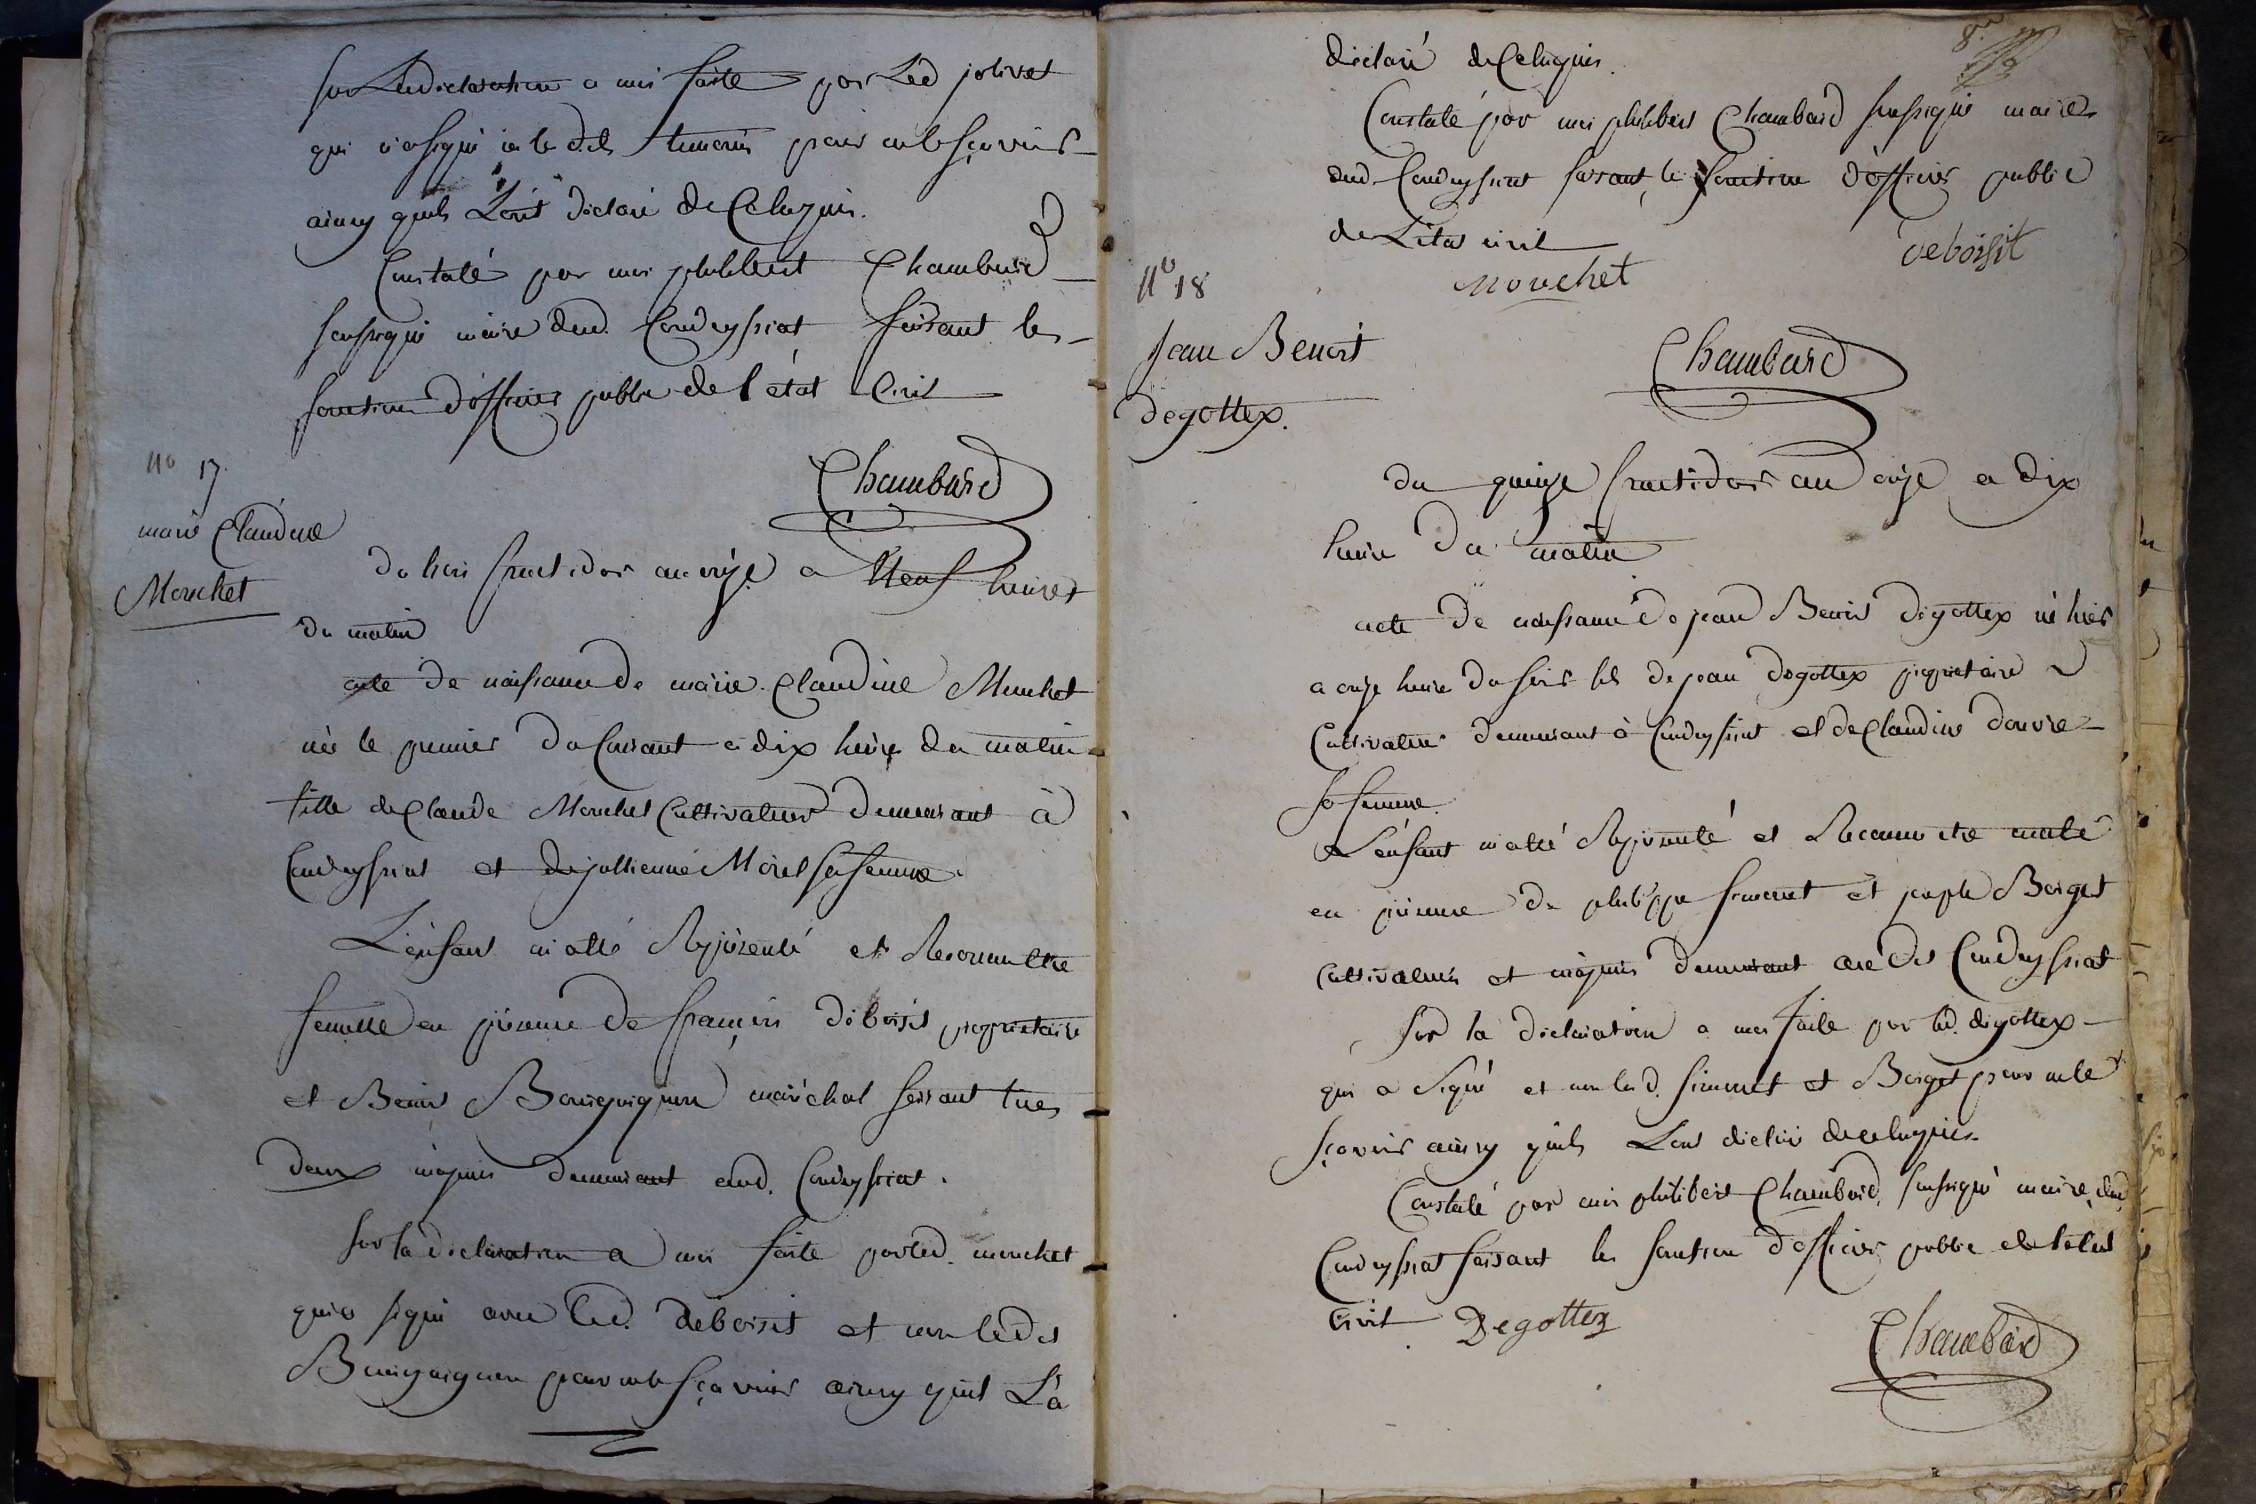 Sur La declaration a moi faite par Led jolivet
qui n'a signé ni le d.ts temoins pour ne le sçavoir
ainsy quils L'ont déclaré de Ce Requis.
Constaté par moi philibert Chambard
soussigné maire dud. Condeyssiat faisant les
fonction d'officier public de l'état Civil
Chambard
no 17
marie Claudine
Mouchet
du trois fructidor an onze a Neuf heures
du matin
acte de naissance de marie Claudine Mouchet
née le premier du Courant a dix heure du matin
fille de Claude Mouchet Cultivateur demeurant à
Condeyssiat et de jullienne Morel sa femme.
L'enfant m'a été Représenté et Reconnu être
femelle en présence de françois deboisit propriétaire
et Benoit Bourguignon maréchal ferrant tous
deux majeurs demeurant aud. Condeyssiat.
Sur la déclaration a moi faite par led. mouchet
qui a signé avec led. deboisit et non ledit
Bourguignon pour ne le sçavoir ainsy quil L'a
8.
déclaré de Ce Requis.
Constaté par moi philibert Chambard soussigné maire
dud. Condeyssiat faisant les fonction d'officier public
de L'état civil
deboisit
mouchet
no 18
Jean Benoit
degottex.
Chambard
du quinze fructidor an onze a dix
heure du matin
acte de naissance de jean Benoit degottex né hier
a onze heure du soir fils de jean degottex propriétaire
Cultivateur demeurant à Condeyssiat et de Claudine
sa femme.
L'enfant m'a été Représenté et Reconnu être male
en présence de philippe simonet et joseph Borget
Cultivateurs et majeurs demeurant audit Condeyssiat
Sur la declaration a moi faite par led. degottex
qui a signé et non lesd. simonet et Borget pour ne le
sçavoir ainsy quils L'ont déclaré de ce Requis.
Constaté par moi philibert Chambard soussigné maire dud
Condeyssiat faisant les fonction d'officier public de l'état
civil Degottex
Chambard